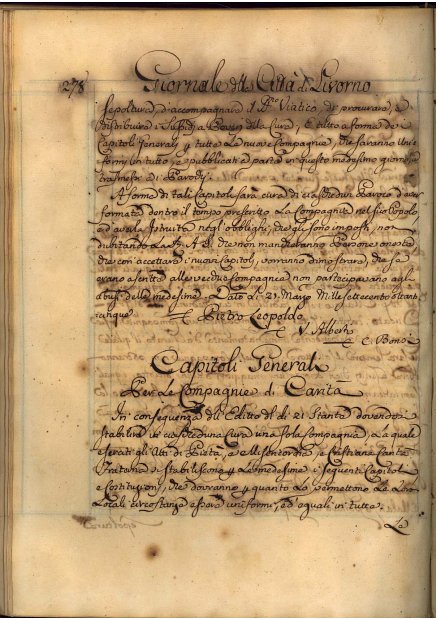 278 Giornale della Città di Livorno
Sepoltura, d'accompagnare il SS.mo Viatico, di procurare, e
distribuire i Sussidj a Poveri della Cura, e tutto a forma de
Capitoli Generali p tutte le nuove Compagnie, che saranno Uni-
formi in tutto, e pubblicati a parte in questo medesimo giorno
di Parrochi.
A forma di tali Capitoli sarà cura di ciascheduno Paroco d'aver
formata dentro il tempo prescritto la Compagnia nel suo Popolo
ed averla Istruita negli obblighi, che gli sono imposti, non
dubitando la S. A. R. che non mancheranno Persone oneste
che con accettare i nuovi Capitoli, vorranno dimostrare, che se
erano ascritte alle vecchie Compagnie non partecipavano agli
abusi delle medesime. Dato li 21 Marzo Mille settecento ottant
cinque
Pietro Leopoldo
V. Alberti
C. Bono
Capitoli Generali
Per Le Compagnie di Carità
In consequenza dell Editto del di 21 Stante dovendosi
stabilire in ciascheduna Cura una sola Compagnia, la quale
eserciti gli Atti di Pietà, e Misericordia, e Cristiana santa
Fratellanza si stabiliscono p le medesime i seguenti Capitoli
e Costituzioni, che dovranno p quanto lo permettono le loro
Locali circostanze essere uniformi, ed eguali in tutto.
La